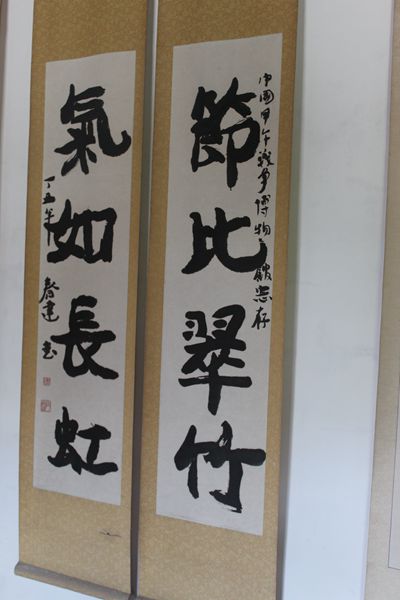 中國甲午戰爭博物館惠存
節比翠竹
氣如長虹
丁丑年 春建書